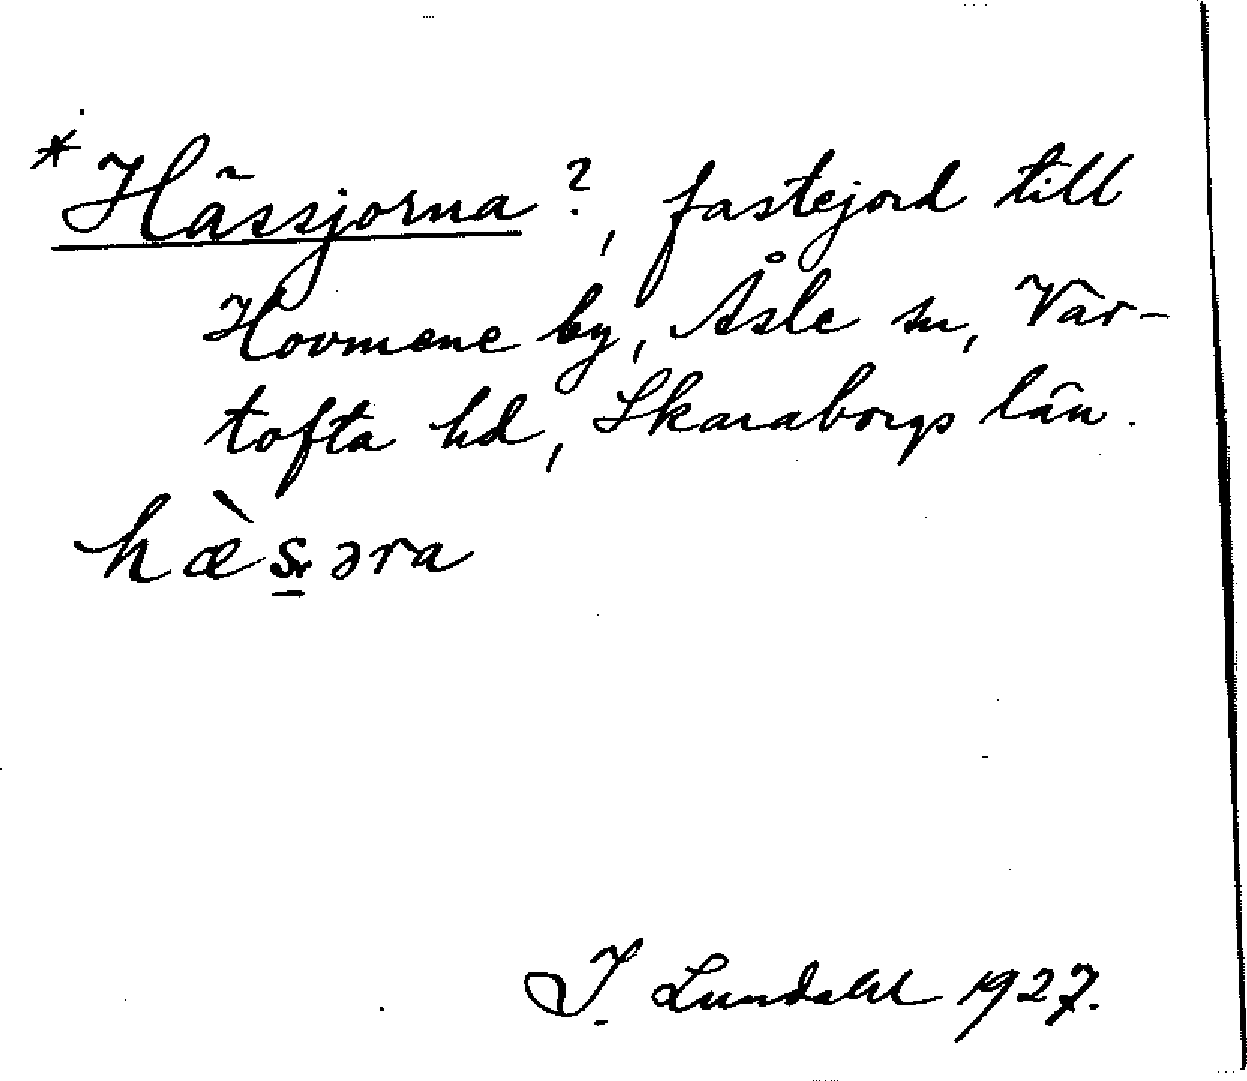 * Hässjorna?, fastejord till
Hovmene by, Åsle sn, Var-
tofta hd, Skaraborgs län.
hæ̀s̠əra
I. Lundahl 1927.